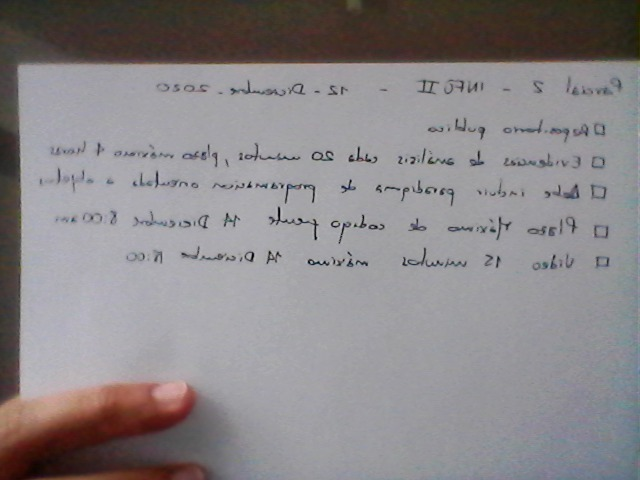 Parcial 2 - INFO II - 12 - Diciembre - 2020
Repositorio publico
Evidencias de análisis cada 20 minutos, plazo máximo 4 Horas
Debe incluir paradigma de programacion orientada a objetos
Plazo Máximo de codigo fuente 14 Diciembre 8:00 am
Video 15 minutos máximo 14 Diciembre